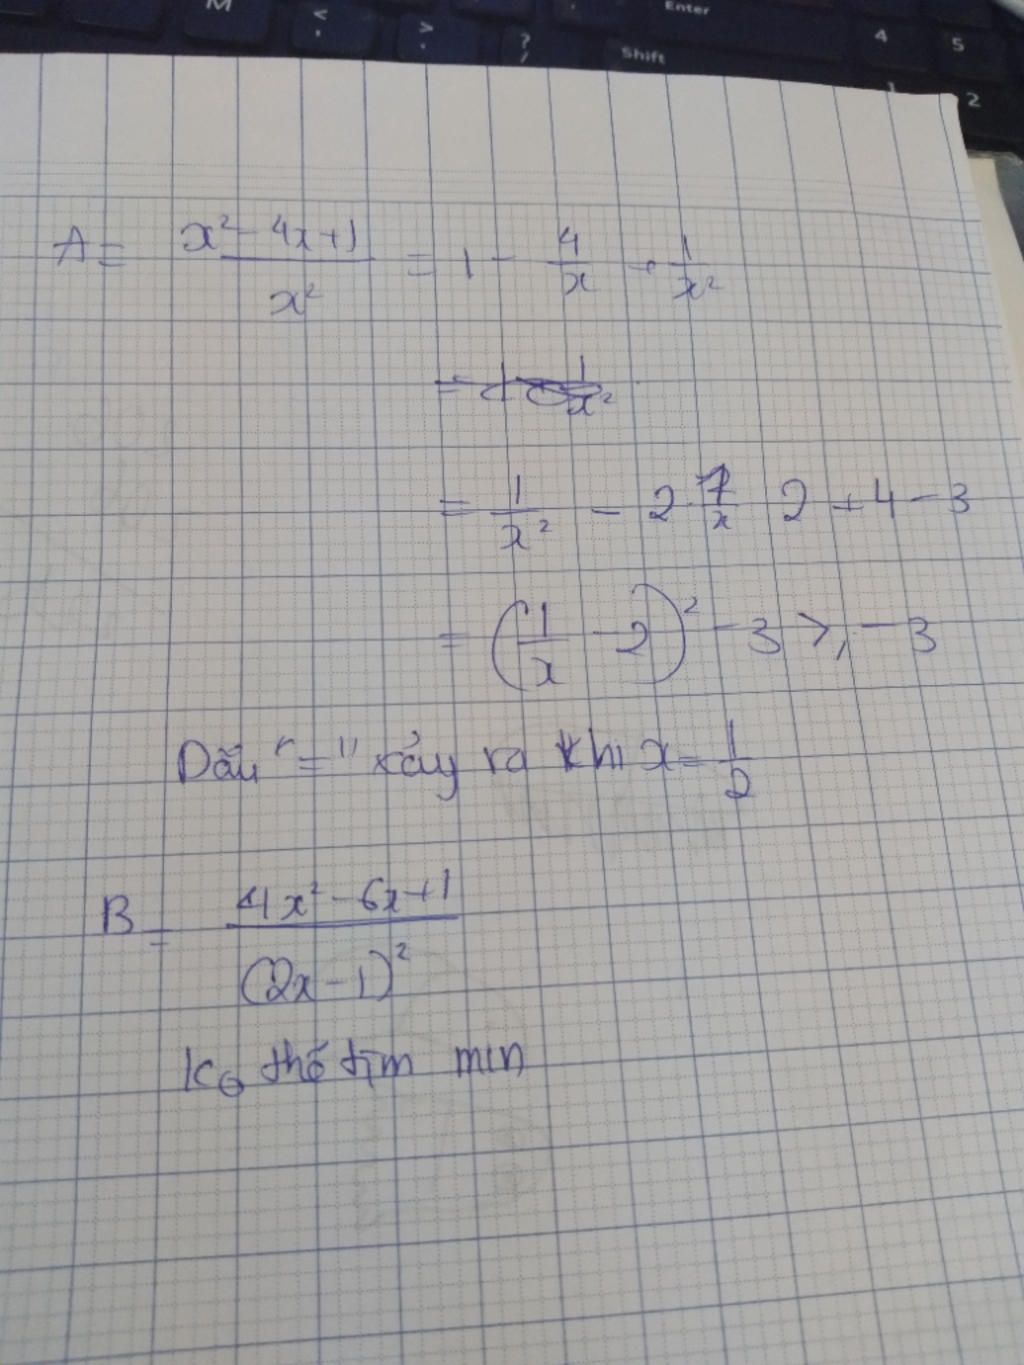 M < , > . ? / Enter Shift 4 5 1 2
A = x² - 4x + 1 / x² = 1 - 4/x + 1/x²
= 1/x²
= 1/x² - 2 . 1/x 2 + 4 - 3
= (1/x - 2)² - 3 ⩾ - 3
Dấu "=" xảy ra khi x = 1/2
B = 4x² - 6x + 1 / (2x - 1)²
Ko thể tìm min